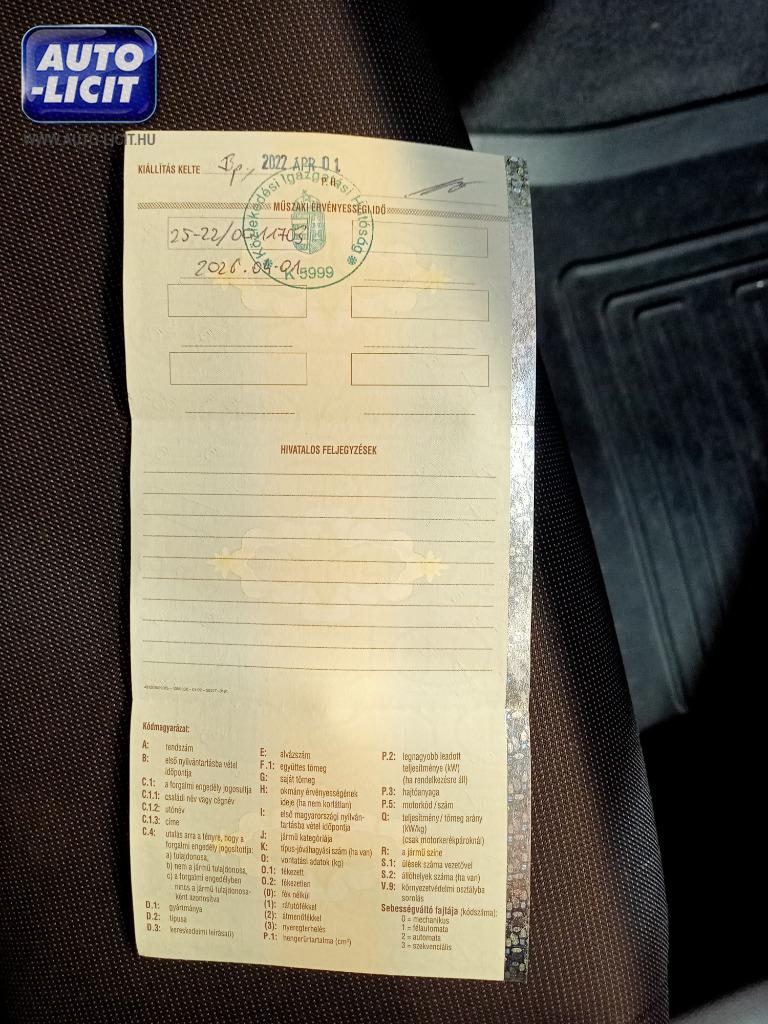 AUTO
-LICIT
WWW.AUTO-LICIT.HU
KIÁLLÍTÁS KELTE Bp, 2022 APR 01
P.H.
Közlekedési Igazgatási Hatóság
K 5999
MŰSZAKI ÉRVÉNYESSÉGI IDŐ
25-22/0011703
2026.04.01
HIVATALOS FELJEGYZÉSEK
Kódmagyarázat:
A: rendszám
B: első nyilvántartásba vétel
időpontja
C.1: a forgalmi engedély jogosultja
C.1.1: családi név vagy cégnév
C.1.2: utónév
C.1.3: címe
C.4: utalás arra a tényre, hogy a
forgalmi engedély jogosítottja:
a) tulajdonosa,
b) nem a jármű tulajdonosa,
c) a forgalmi engedélyben
nincs a jármű tulajdonosa-
ként azonosítva
D.1: gyártmánya
D.2: típusa
D.3: kereskedelmi leírása(i)
E: alvázszám
F.1: együttes tömeg
G: saját tömeg
H: okmány érvényességének
ideje (ha nem korlátlan)
I: első magyarországi nyilván-
tartásba vétel időpontja
J: jármű kategóriája
K: típus-jóváhagyási szám (ha van)
O: vontatási adatok (kg)
O.1: fékezett
O.2: fékezetlen
(0): fék nélkül
(1): ráfutófékkel
(2): átmenőfékkel
(3): nyeregterhelés
P.1: hengerűrtartalma (cm³)
P.2: legnagyobb leadott
teljesítménye (kW)
(ha rendelkezésre áll)
P.3: hajtóanyaga
P.5: motorkód / szám
Q: teljesítmény / tömeg arány
(kW/kg)
(csak motorkerékpároknál)
R: a jármű színe
S.1: ülések száma vezetővel
S.2: állóhelyek száma (ha van)
V.9: környezetvédelmi osztályba
sorolás
Sebességváltó fajtája (kódszáma):
0 = mechanikus
1 = félautomata
2 = automata
3 = szekvenciális